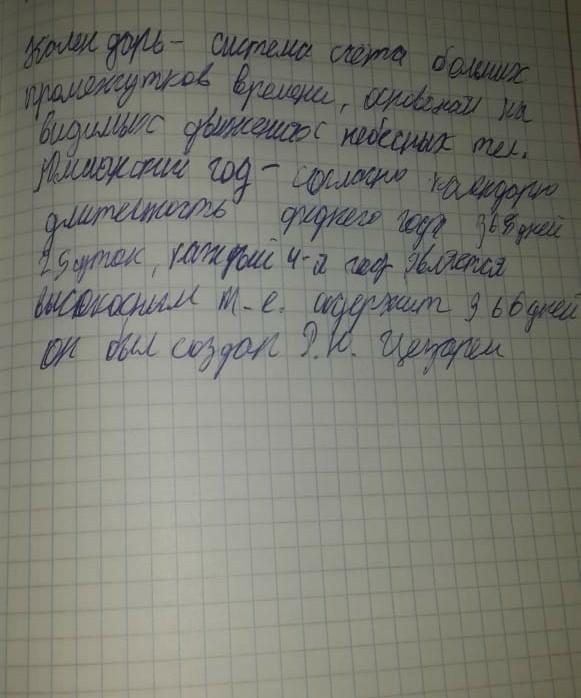 Кален дарь - система счёта больших
промежутков времени, основаная на
видимых движениях небесных тел.
Юлианский год - согласно календарю
длительность среднего года 365 дней
25 суток, каждый 4-й год является
высокосным т.е. содержит 366 дней
он был создан Г.Ю. Цезарем